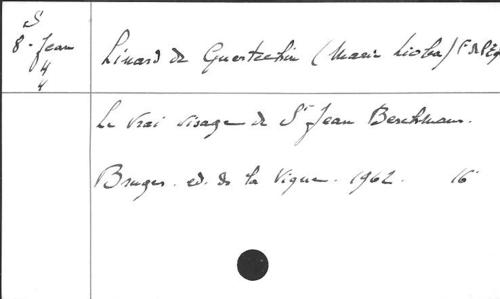 S
8 - Jean
4
4
Linard de Guertechin (Marie Lioba)
Le vrai visage de St Jean Berchmans.
Bruges. ed. de la Vigne. 1962. 16